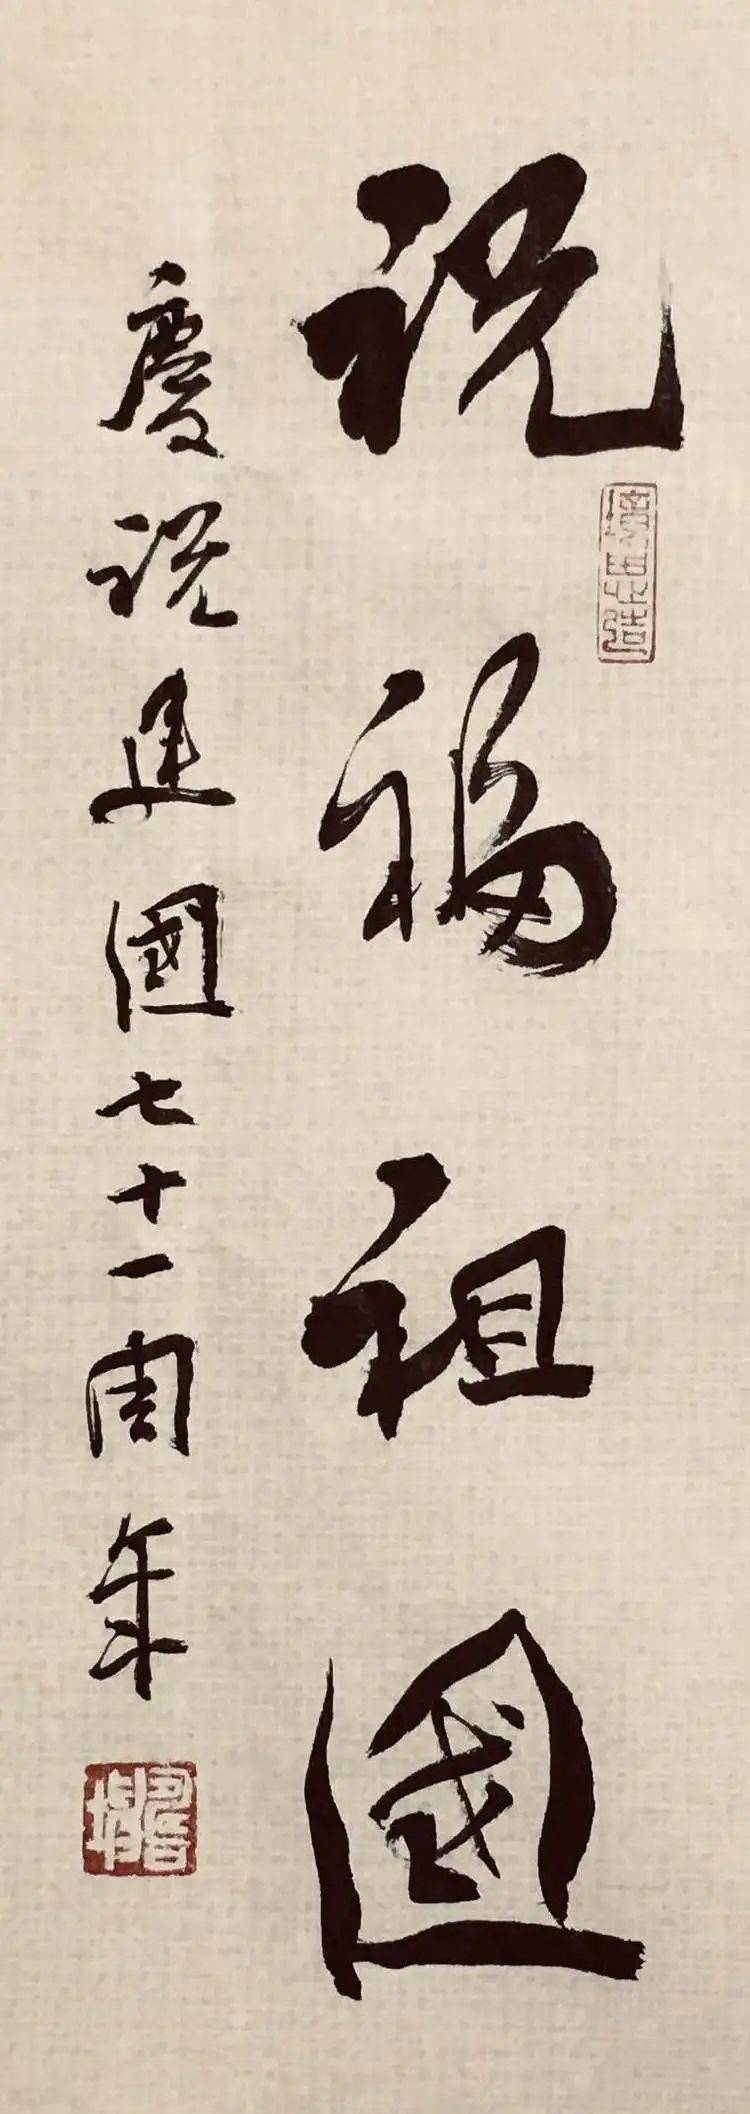 祝福祖國
慶祝建國七十一周年